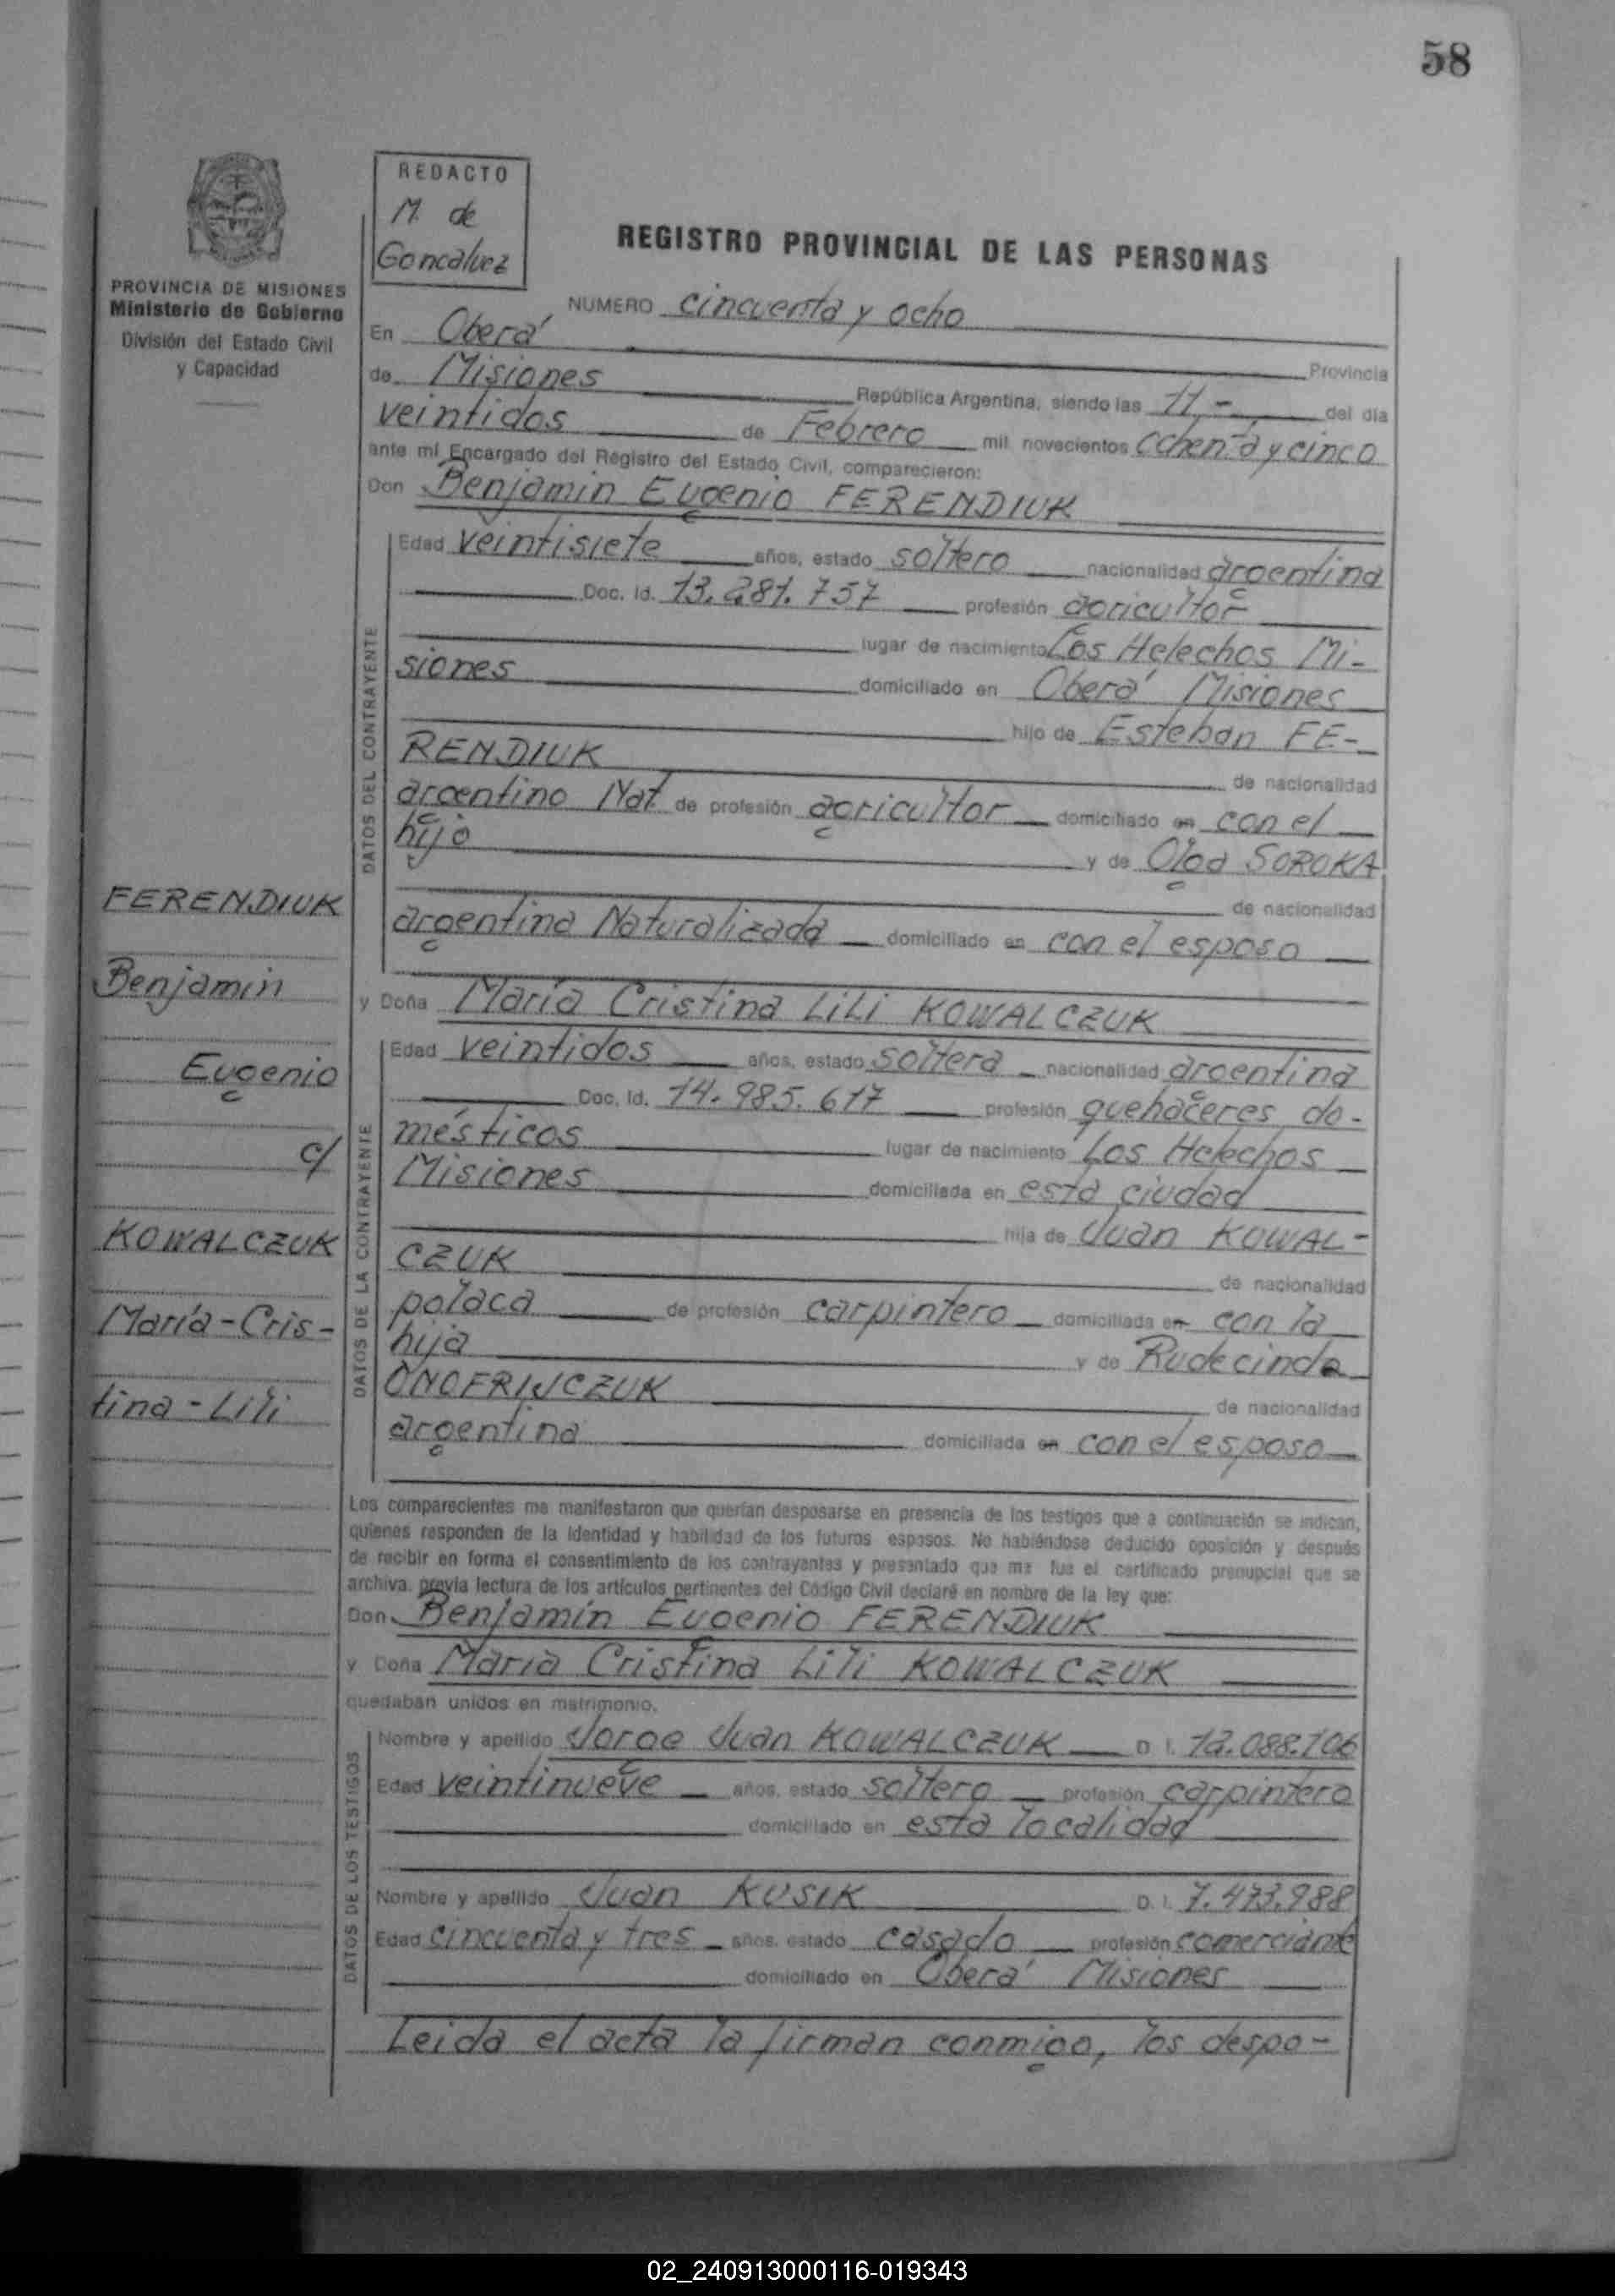 58
REDACTO
M. de
Goncalvez
REGISTRO PROVINCIAL DE LAS PERSONAS
PROVINCIA DE MISIONES
Ministerio de Gobierno
División del Estado Civil
y Capacidad
NUMERO cincuenta y ocho
En Oberá Provincia
de Misiones República Argentina, siendo las 11,- del día
veintidos de Febrero mil novecientos ochenta y cinco
ante mí Encargado del Registro del Estado Civil, comparecieron:
Don Benjamin Eugenio FERENDIUK
DATOS DEL CONTRAYENTE
Edad veintisiete años, estado soltero nacionalidad argentina
Doc. Id. 13.281.757 profesión agricultor
lugar de nacimiento Los Helechos Mi-
siones domiciliado en Oberá Misiones
hijo de Esteban FE-
RENDIUK de nacionalidad
argentino Nat de profesión agricultor domiciliado en con el
hijo y de Olga SOROKA
de nacionalidad
argentina Naturalizada domiciliado en con el esposo
y Doña María Cristina LiLi KOWALCZUK
DATOS DE LA CONTRAYENTE
Edad veintidos años, estado soltera nacionalidad argentina
Doc. Id. 14.985.617 profesión quehaceres do-
mésticos lugar de nacimiento Los Helechos
Misiones domiciliada en esta ciudad
hija de Juan KOWAL-
CZUK de nacionalidad
polaca de profesión carpintero domiciliada en con la
hija y de Rudecinda
ONOFRIJCZUK de nacionalidad
argentina domiciliada en con el esposo
FERENDIUK
Benjamin
Eugenio
c/
KOWALCZUK
María-Cris-
tina-LiLi
Los comparecientes me manifestaron que querían desposarse en presencia de los testigos que a continuación se indican,
quienes responden de la identidad y habilidad de los futuros esposos. No habiéndose deducido oposición y después
de recibir en forma el consentimiento de los contrayentes y presentado que me fue el certificado prenupcial que se
archiva, previa lectura de los artículos pertinentes del Código Civil declaré en nombre de la ley que:
Don Benjamín Eugenio FERENDIUK
y Doña María Cristina LiLi KOWALCZUK
quedaban unidos en matrimonio.
DATOS DE LOS TESTIGOS
Nombre y apellido Jorge Juan KOWALCZUK D. I. 12.088.106
Edad veintinueve años, estado soltero profesión carpintero
domiciliado en esta localidad
Nombre y apellido Juan KUSIK D. I. 7.473.988
Edad cincuenta y tres años, estado casado profesión comerciante
domiciliado en Oberá Misiones
Leida el acta la firman conmigo, los despo-
02_240913000116-019343